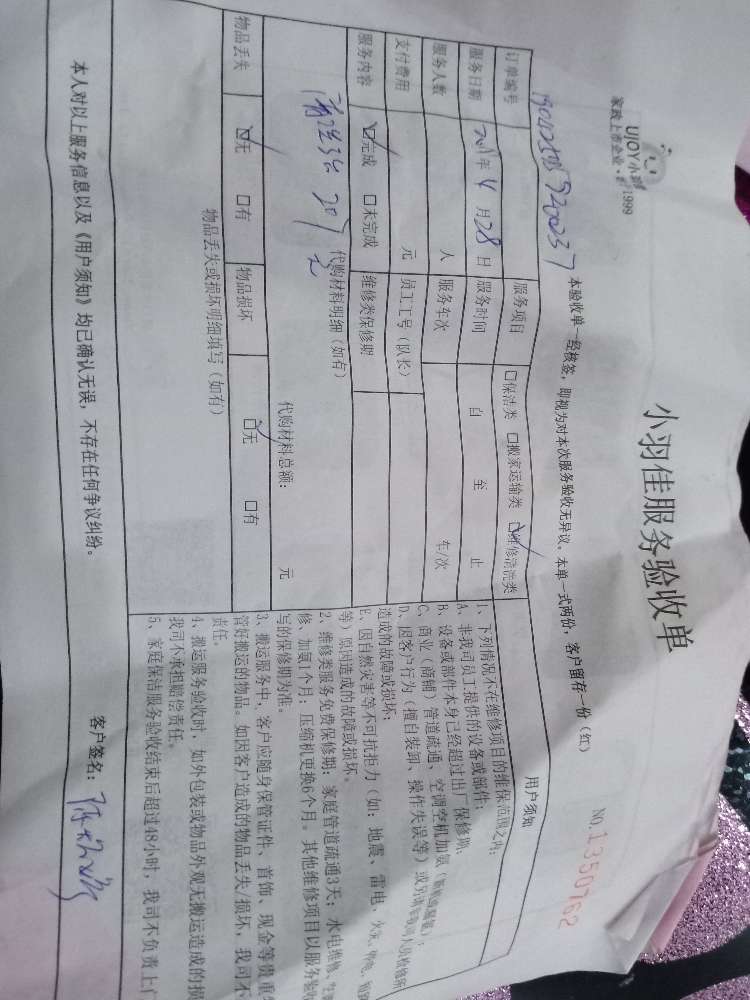 UJOY小羽佳
家政上市企业
1999
小羽佳服务验收单
NO.1350762
本验收单一经核签，即视为对本次服务验收无异议。本单一式两份，客户留存一份（红）
订单编号
服务项目 □保洁类 □搬家运输类 ☑维修清洗类
服务日期 年4月28日 服务时间 自 至 止
服务人数 人 服务车次 车/次
支付费用 元 员工工号（队长）
服务内容 ☑完成 □未完成 维修类保修期
代购材料明细（如有）
代购材料总额： 元
物品丢失 ☑无 □有 物品损坏 ☑无 □有
物品丢失或损坏明细填写（如有）
用户须知
1、下列情况不在维修项目的维保范围之内：
A、非我司员工提供的设备或部件；
B、设备或部件本身已经超过出厂保修期；
C、商业（商铺）管道疏通、空调空机加氨
D、因客户行为（擅自装卸、操作失误等）或另请
造成的故障或损坏；
E、因自然灾害等不可抗拒力（如：地震、雷电、火灾、停电、
等）原因造成的故障或损坏。
2、维修类服务免费保修期：家庭管道疏通3天；水电维修、
修、加氨1个月；压缩机更换6个月。其他维修项目以服务验收
写的保修期为准。
3、搬运服务中，客户应随身保管证件、首饰、现金等贵重
管好搬运的物品。如因客户造成的物品丢失/损坏，我司不
责任。
4、搬运服务验收时，如外包装或物品外观无搬运造成的损
我司不承担赔偿责任。
5、家庭保洁服务验收结束后超过48小时，我司不负责上
本人对以上服务信息以及《用户须知》均已确认无误，不存在任何争议纠纷。
客户签名：